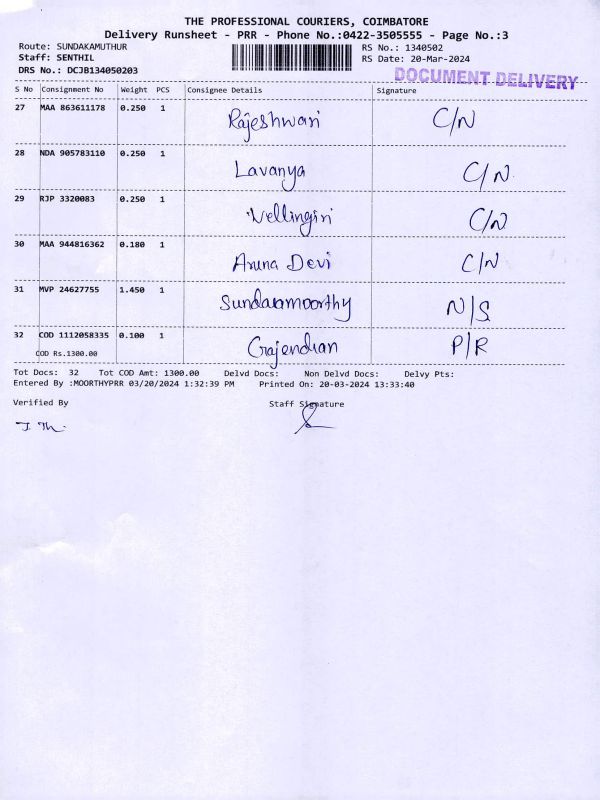 THE PROFESSIONAL COURIERS, COIMBATORE
Delivery Runsheet - PRR - Phone No.:0422-3505555 - Page No.:3
Route: SUNDAKAMUTHUR RS No.: 1340502
Staff: SENTHIL RS Date: 20-Mar-2024
DRS No.: DCJB134050203 DOCUMENT DELIVERY
S No Consignment No Weight PCS Consignee Details Signature
27 MAA 863611178 0.250 1 Rajeshwari C/N
28 NDA 905783110 0.250 1 Lavanya C/N.
29 RJP 3320083 0.250 1 Vellingiri C/N
30 MAA 944816362 0.180 1 Aruna Devi C/N
31 MVP 24627755 1.450 1 Sundaramoorthy N/S
32 COD 1112058335 0.100 1 Gajendran P/R
COD Rs.1300.00
Tot Docs: 32 Tot COD Amt: 1300.00 Delvd Docs: Non Delvd Docs: Delvy Pts:
Entered By :MOORTHYPRR 03/20/2024 1:32:39 PM Printed On: 20-03-2024 13:33:40
Verified By Staff Signature